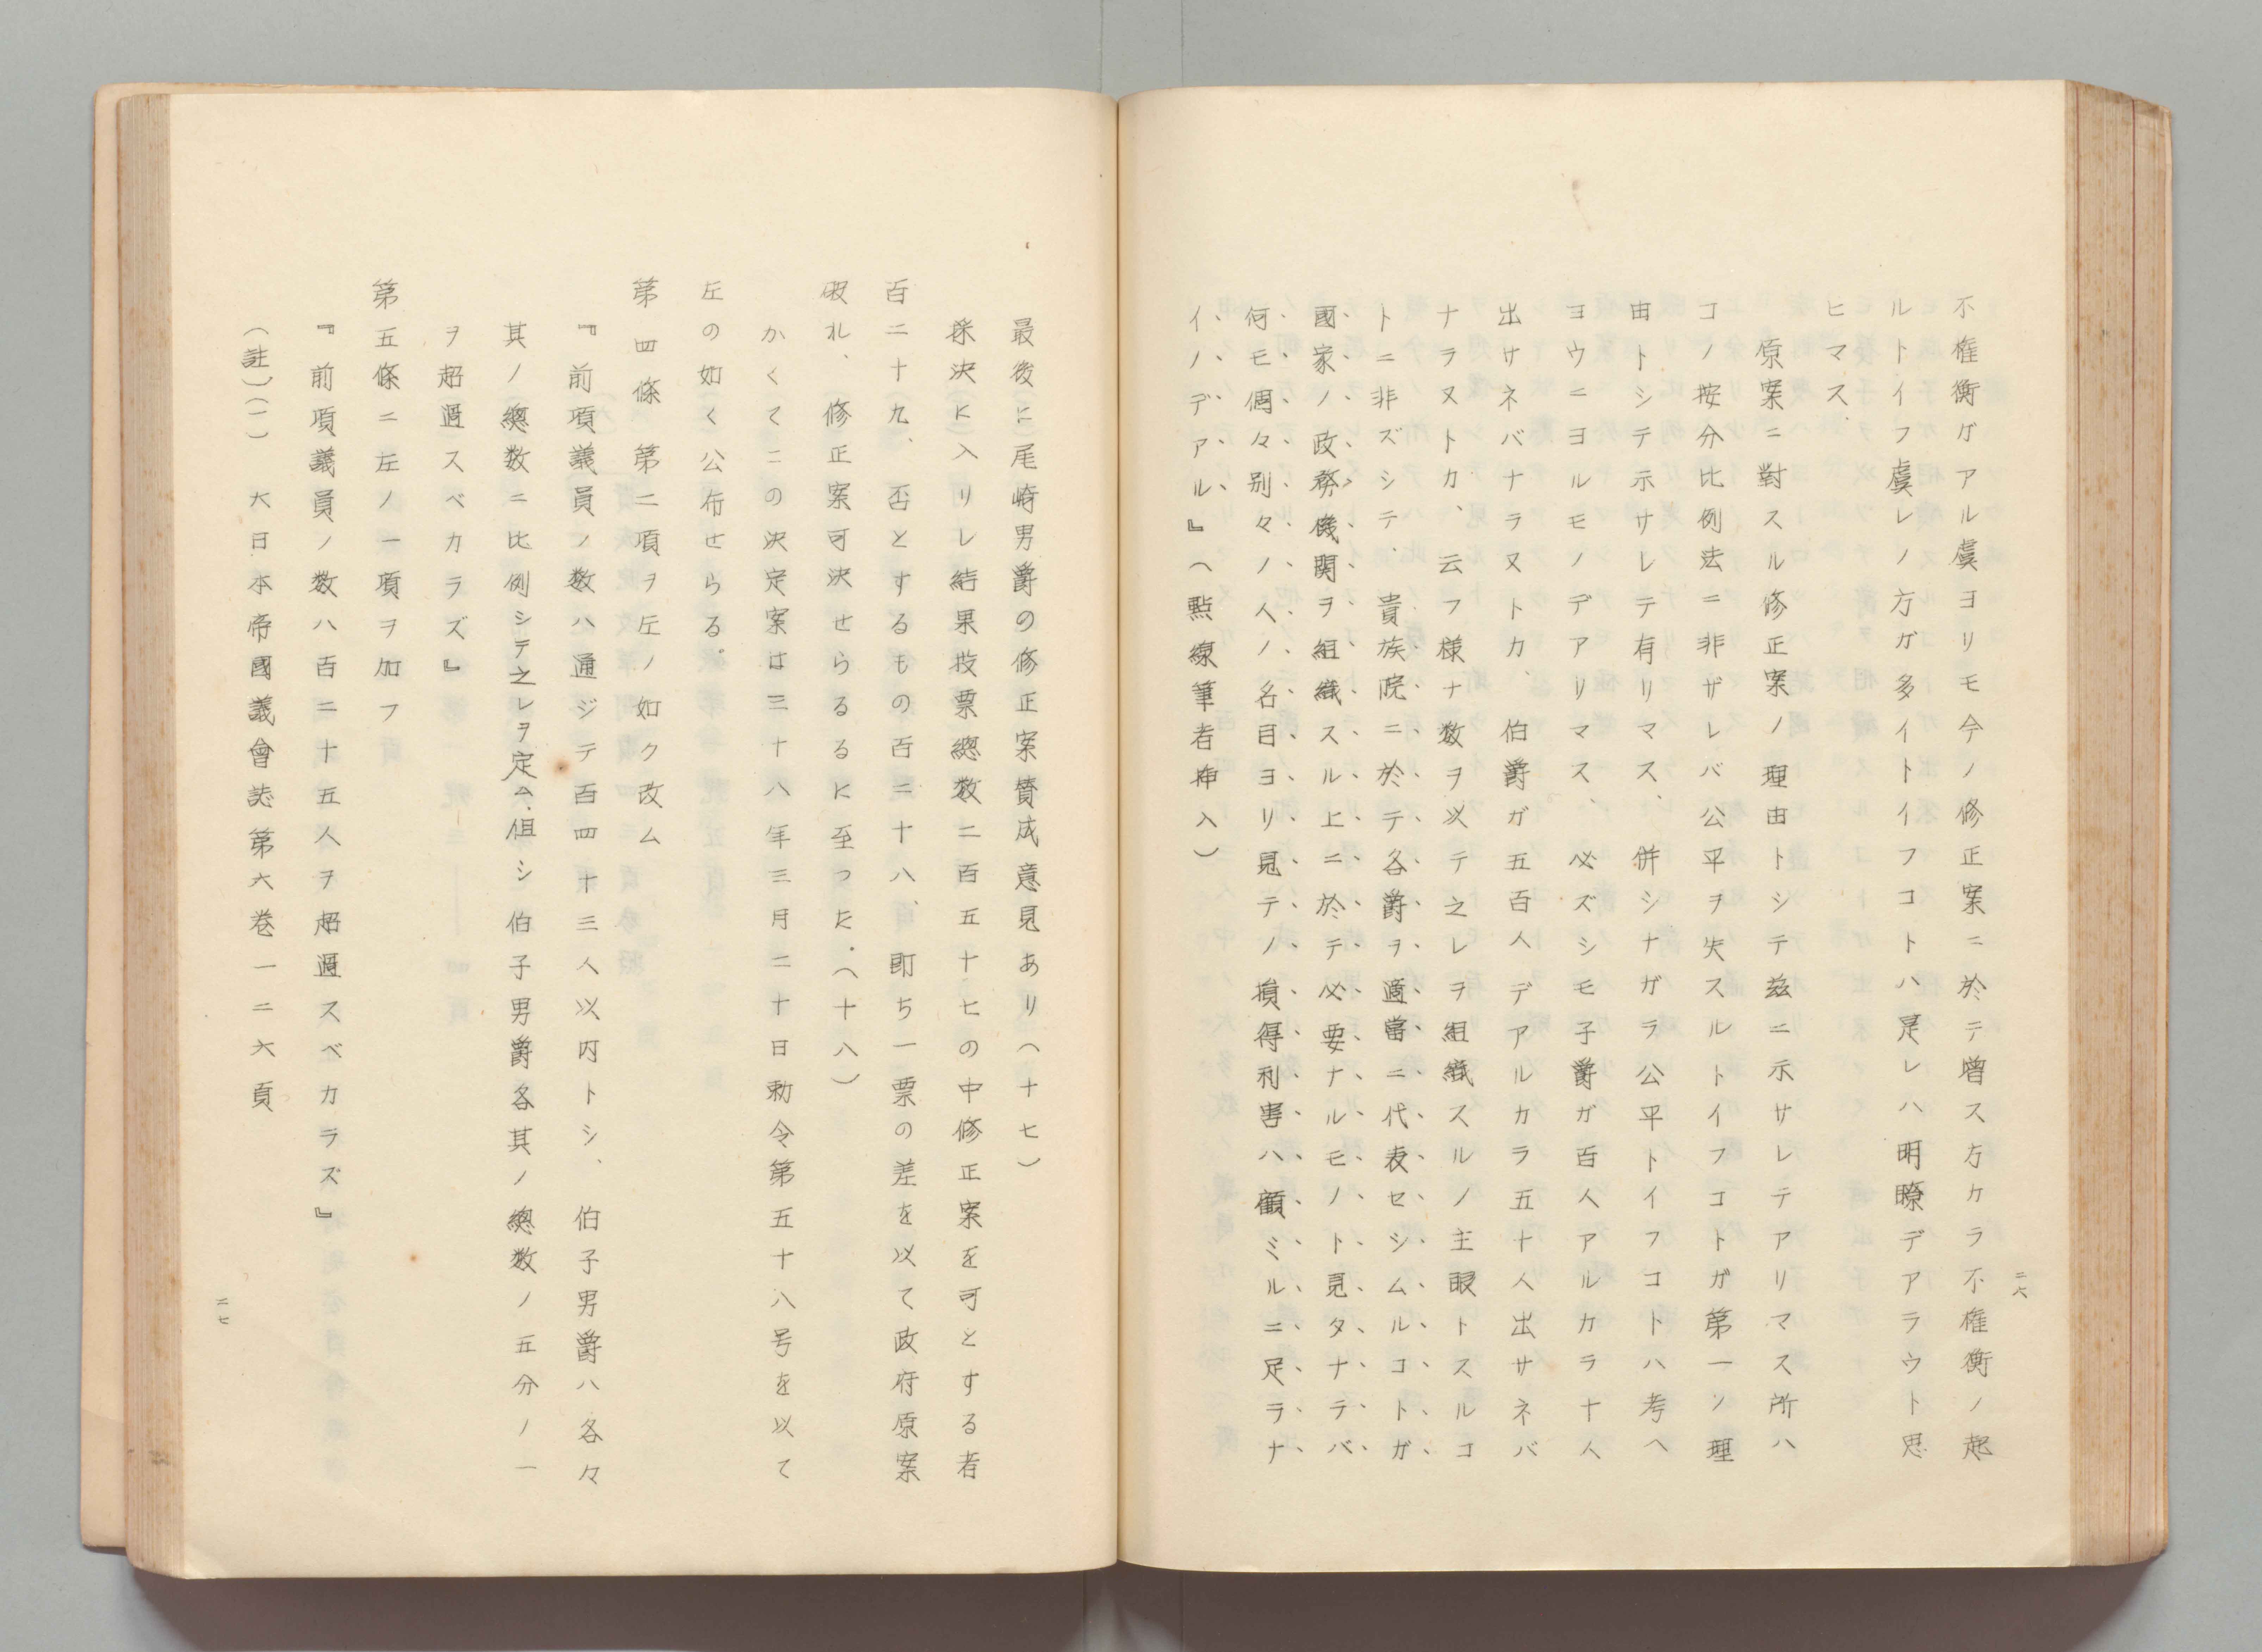 不権衡ガアル虞ヨリモ今ノ修正案ニ於テ増ス方カラ不権衡ノ起
ルトイフ虞レノ方ガ多イトイフコトハ是レハ明瞭デアラウト思
ヒマス、
原案ニ對スル修正案ノ理由トシテ茲ニ示サレテアリマス所ハ
コノ按分比例法ニ非ザレバ公平ヲ失スルトイフコトガ第一ノ理
由トシテ示サレテ有リマス、併シナガラ公平トイフコトハ考ヘ
ヨウニヨルモノデアリマス、必ズシモ子爵ガ百人アルカラ十人
出サネバナラヌトカ、伯爵ガ五百人デアルカラ五十人出サネバ
ナラヌトカ、云フ様ナ数ヲ以テ之レヲ組織スルノ主眼トスルコ
トニ非ズシテ、貴族院ニ於テ各爵ヲ適當ニ代表セシムルコトガ
國家ノ政務機関ヲ組織スル上ニ於テ必要ナルモノト見タナラバ
何モ個々別々ノ人ノ名目ヨリ見テノ損得利害ハ顧ミルニ足ラナ
イノデアル』（點線筆者挿入）
二六
最後に尾崎男爵の修正案賛成意見あり（十七）
採決に入りし結果投票總数二百五十七の中修正案を可とする者
百二十九、否とするもの百二十八、即ち一票の差を以て政府原案
破れ、修正案可決せらるるに至つた。（十八）
かくてこの決定案は三十八年三月二十日勅令第五十八号を以て
左の如く公布せらる。
第四條 第二項ヲ左ノ如ク改ム
『前項議員ノ数ハ通ジテ百四十三人以内トシ、伯子男爵ハ各々
其ノ總数ニ比例シテ之レヲ定ム、但シ伯子男爵各其ノ總数ノ五分ノ一
ヲ超過スベカラズ』
第五條ニ左ノ一項ヲ加フ
『前項議員ノ数ハ百二十五人ヲ超過スベカラズ』
（註）（一） 大日本帝國議會誌第六巻一二六頁
二七